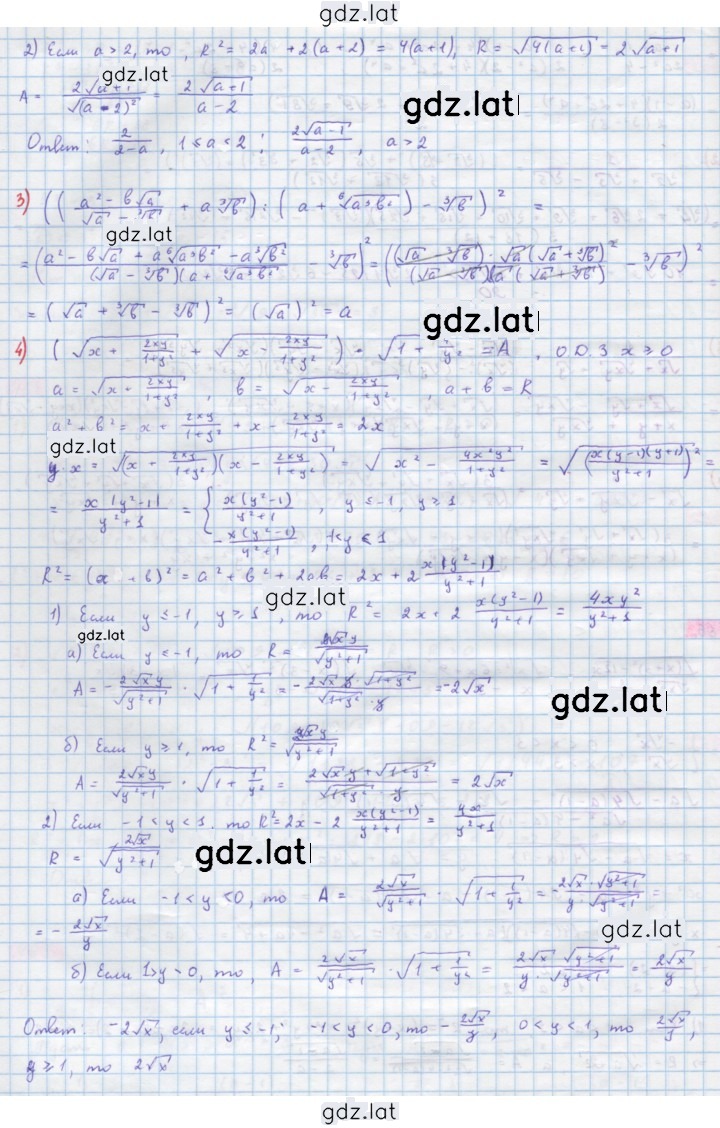 gdz.lat
2) Если a > 2, то , R² = 2a + 2(a+2) = 4(a+1), R = √(4(a+1)) = 2√(a+1)
gdz.lat
A = 2√(a+1) / √((a-2)²) = 2√(a+1) / (a-2)
gdz.lat
Ответ: 2/(2-a), 1 ≤ a < 2 ; 2√(a-1)/(a-2), a > 2
3) (((a² - b√a)/(√a - ∛b) + a∛b) : (a + ⁶√(a³b²)) - ∛b)² =
= ((a² - b√a + a⁶√(a³b²) - a∛b²)/((√a - ∛b)(a + ⁶√(a³b²))) - ∛b)² = (((√a - ∛b)·√a(√a + ∛b)²)/((√a - ∛b)(a(√a + ∛b)) - ∛b)²
= (√a + ∛b - ∛b)² = (√a)² = a
gdz.lat
4) (√(x + 2xy/(1+y²)) + √(x - 2xy/(1+y²))) · √(1 + 1/y²) = A , О.D.З x ≥ 0
a = √(x + 2xy/(1+y²)) , b = √(x - 2xy/(1+y²)) , a + b = R
a² + b² = x + 2xy/(1+y²) + x - 2xy/(1+y²) = 2x
gdz.lat
y·x = √((x + 2xy/(1+y²))(x - 2xy/(1+y²))) = √(x² - 4x²y²/(1+y²)) = √((x(y-1)(y+1)/(y²+1))²) =
= x|y²-1|/(y²+1) = { x(y²-1)/(y²+1) , y ≤ -1, y ≥ 1
-x(y²-1)/(y²+1) , -1<y<1
R² = (x + b)² = a² + b² + 2ab = 2x + 2 x|y²-1|/(y²+1)
gdz.lat
1) Если y ≤ -1, y ≥ 1 , то R² = 2x + 2 x(y²-1)/(y²+1) = 4xy²/(y²+1)
gdz.lat
а) Если y < -1, то R = 2√x y/√(y²+1)
A = - 2√x y/√(y²+1) · √(1 + 1/y²) = - 2√x y · √(1+y²)/(√(1+y²) · y) = -2√x
gdz.lat
б) Если y ≥ 1, то R² = 2√x y/√(y²+1)
A = 2√x y/√(y²+1) · √(1 + 1/y²) = 2√x y + √(1+y²)/(√(1+y²) · y) = 2√x
2) Если -1 < y < 1. то R² = 2x - 2 x(y²-1)/(y²+1) = 4x/(y²+1)
R = 2√x/√(y²+1)
gdz.lat
а) Если -1 < y < 0, то A = 2√x/√(y²+1) · √(1 + 1/y²) = - 2√x · √(y²+1)/(y · √(y²+1)) =
= - 2√x/y
gdz.lat
б) Если 1>y>0, то, A = 2√x/√(y²+1) · √(1 + 1/y²) = 2√x √(y²+1)/(y · √(y²+1)) = 2√x/y
gdz.lat
Ответ: -2√x, если y ≤ -1; -1 < y < 0, то - 2√x/y, 0 < y < 1, то 2√x/y,
y ≥ 1, то 2√x
gdz.lat